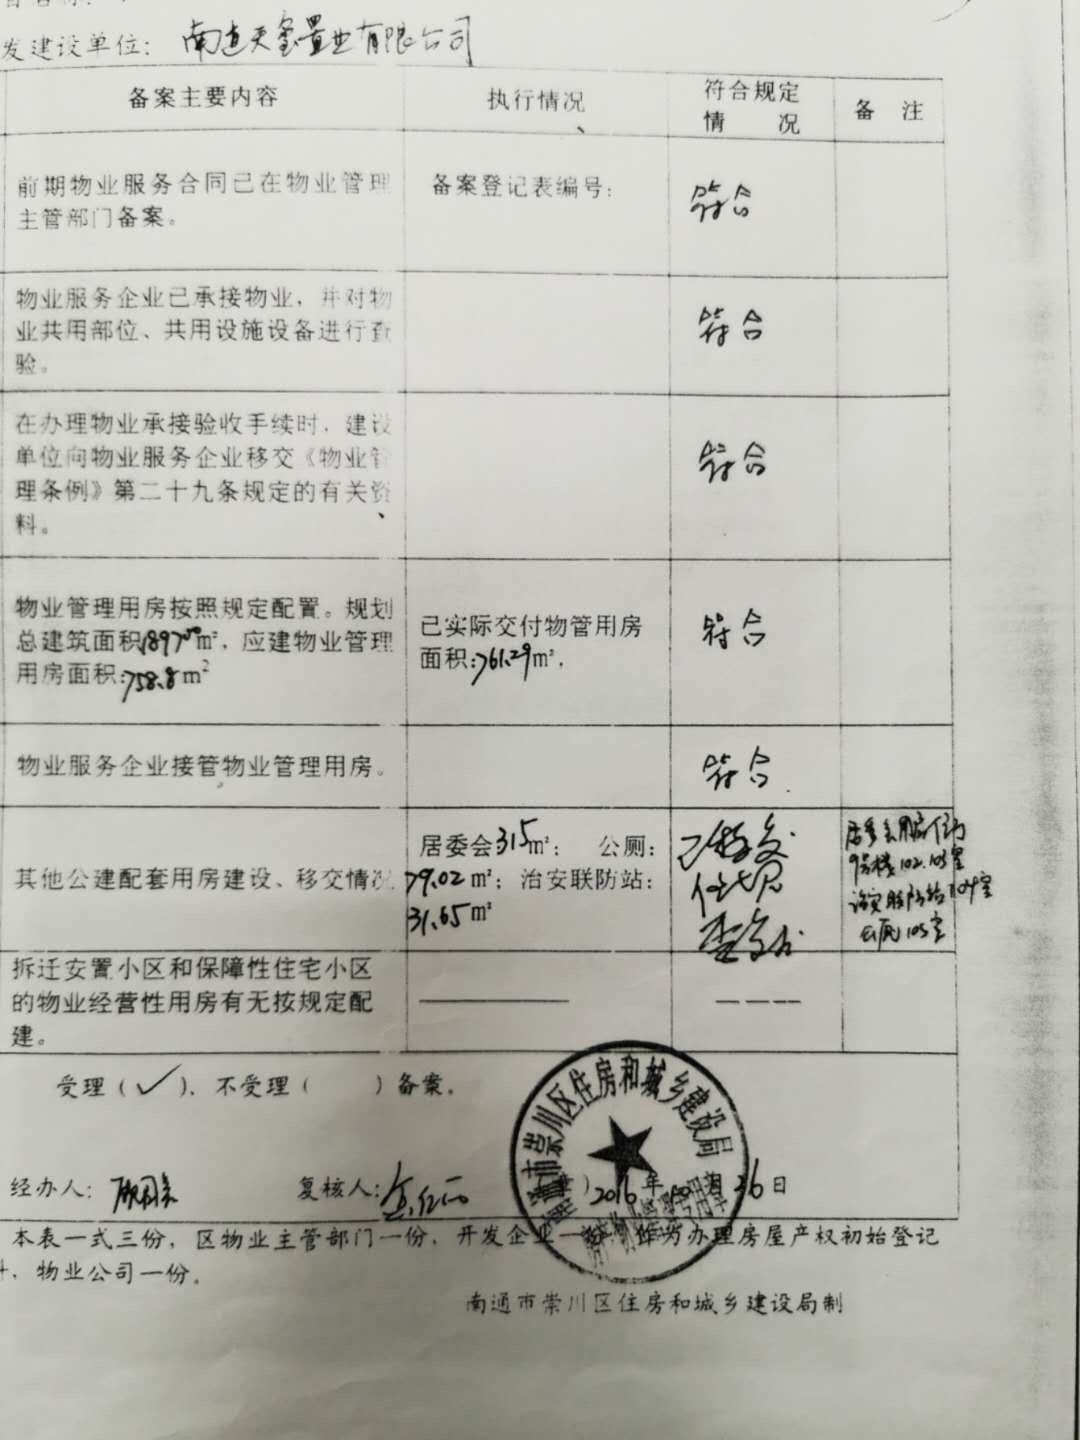 发建设单位: 南通天玺置业有限公司
备案主要内容 执行情况 符合规定情况 备注
前期物业服务合同已在物业管理
主管部门备案。
备案登记表编号:
符合
物业服务企业已承接物业,并对物
业共用部位、共用设施设备进行查
验。
符合
在办理物业承接验收手续时,建设
单位向物业服务企业移交《物业管
理条例》第二十九条规定的有关资
料。
符合
物业管理用房按照规定配置。规划
总建筑面积 ㎡,应建物业管理
用房面积:758.8㎡
已实际交付物管用房
面积:761.29㎡,
符合
物业服务企业接管物业管理用房。
符合
其他公建配套用房建设、移交情况
居委会315㎡; 公厕:
79.02㎡; 治安联防站:
31.65㎡
已移交
居委会用房位于
9号楼102.103室
治安联防站104室
公厕105室
拆迁安置小区和保障性住宅小区
的物业经营性用房有无按规定配
建。
受理(✓)、不受理( )备案。
南通市崇川区住房和城乡建设局
经办人: 复核人: 2016年10月26日
本表一式三份,区物业主管部门一份,开发企业一份 作为办理房屋产权初始登记
,物业公司一份。
南通市崇川区住房和城乡建设局制